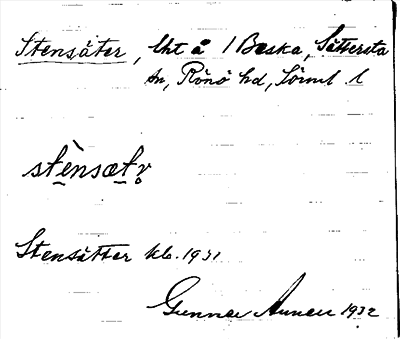 Stensäter, lht å 1 Baska, Sättersta
sn, Rönö hd, Sörml. l
stènsætr̥
Stensätter kb. 1931
Gunnar 1932